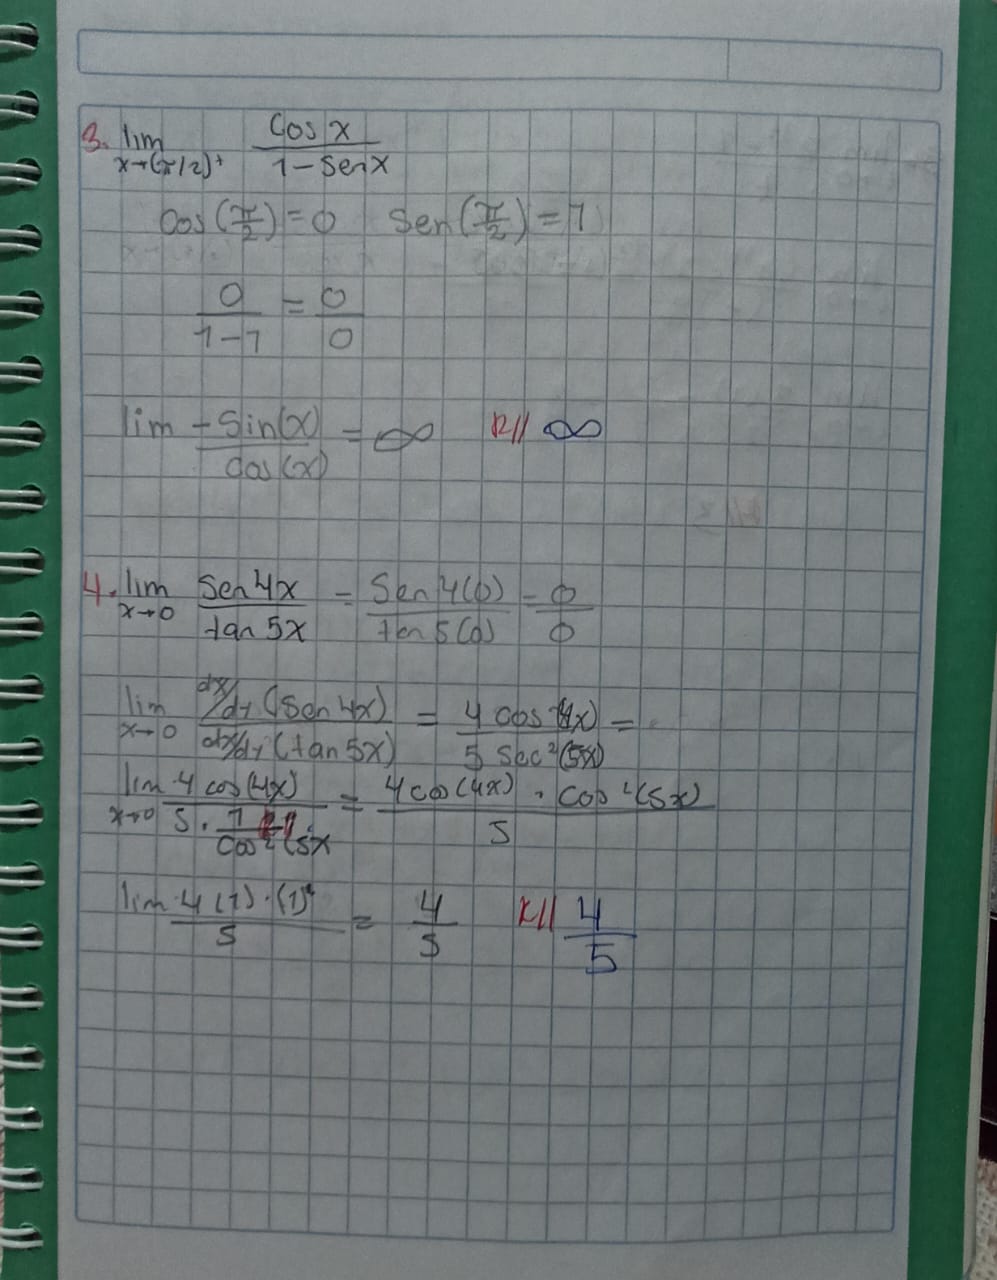 3. lim cos x / 1 - sen x
x→(π/2)+
cos(π/2) = 0 sen(π/2) = 1
0 / 1-1 = 0 / 0
lim -sin(x) / cos(x) = ∞ R// ∞
4. lim sen 4x / tan 5x = sen 4(0) / tan 5(0) = 0 / 0
x→0
lim dx/dy (sen 4x) / dx/dy (tan 5x) = 4 cos (4x) / 5 sec²(5x) =
x→0
lim 4 cos(4x) / 5 · 1 / cos²(5x = 4 cos(4x) · cos²(5x) / 5
x→0
lim 4(1) · (1)² / 5 = 4 / 5 R// 4 / 5